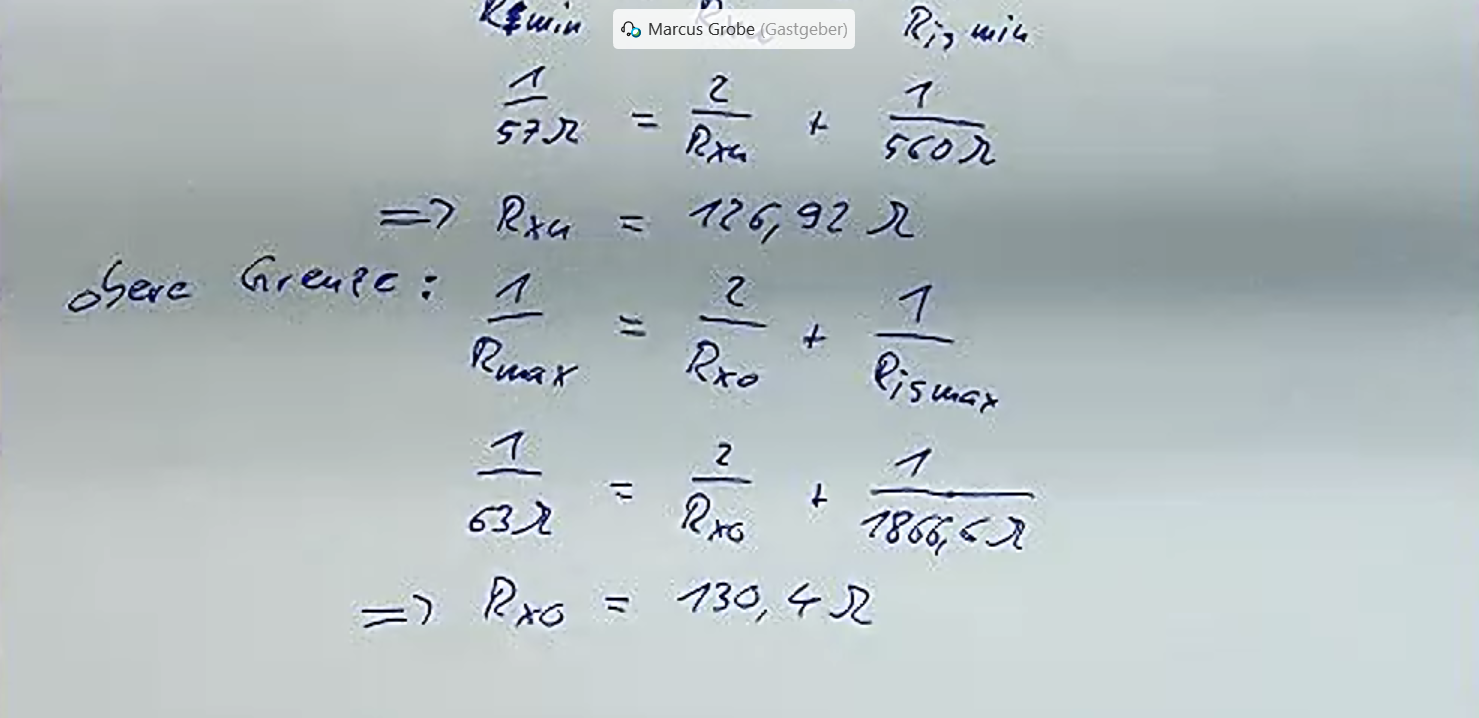 Rmin Rxu Ri,min
Marcus Grobe (Gastgeber)
1/57Ω = 2/Rxu + 1/560Ω
=> Rxu = 126,92 Ω
obere Grenze: 1/Rmax = 2/Rxo + 1/Rismax
1/63Ω = 2/Rxo + 1/1866,6Ω
=> Rxo = 130,4 Ω